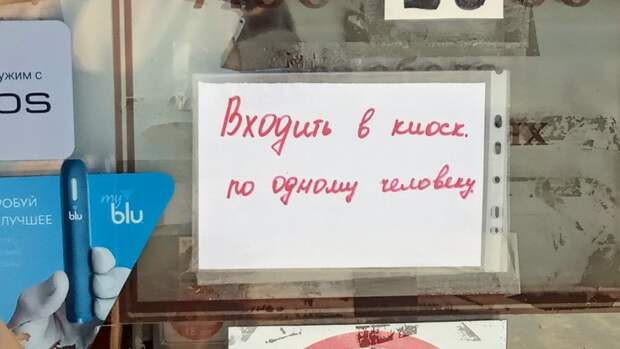 ужим с
OS
Входить в киоск.
по одному человеку
РОБУЙ
ЛУЧШЕЕ
my
blu
blu